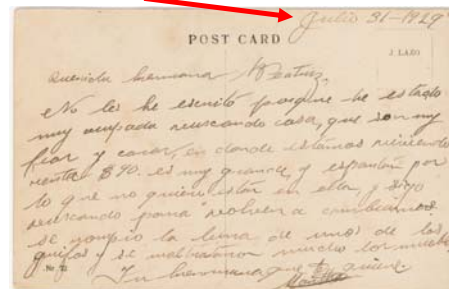 Julio 31-1929
POST CARD
J. LAZO
Querida hermana Beatriz.
No les he escrito porque he estado
muy ocupada buscando casa, que son muy
feas y caras, en donde estamos viviendo
renta $90. es muy grande, y espantón por
lo que no quiero estar en ella, y sigo
buscando para volver a cambiarnos.
se rompio la luna de unos de los
y se maltrataron mucho los muebles
Tu hermana que te quiere.
No. 21